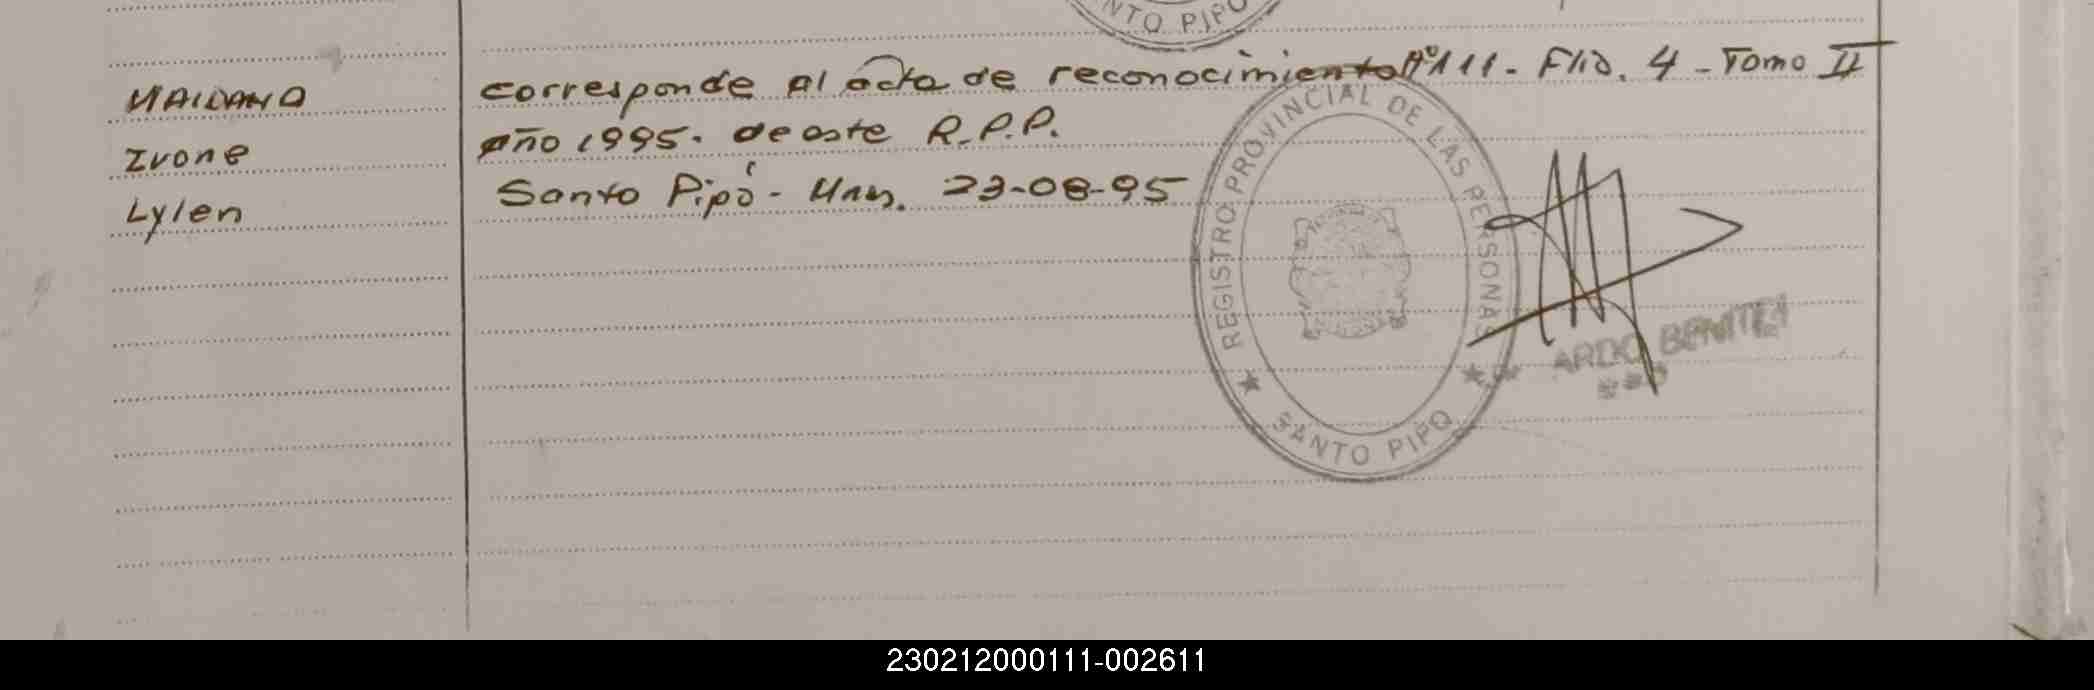 NTO PIPO
MAIDANA
Ivone
Lylen
corresponde al acta de reconocimiento Nº 111 - Flio. 4 - Tomo II
año 1995. de este R.P.P.
Santo Pipó - Mnes. 23-08-95
REGISTRO PROVINCIAL DE LAS PERSONAS
SANTO PIPO
ARDO BENITEZ
230212000111-002611